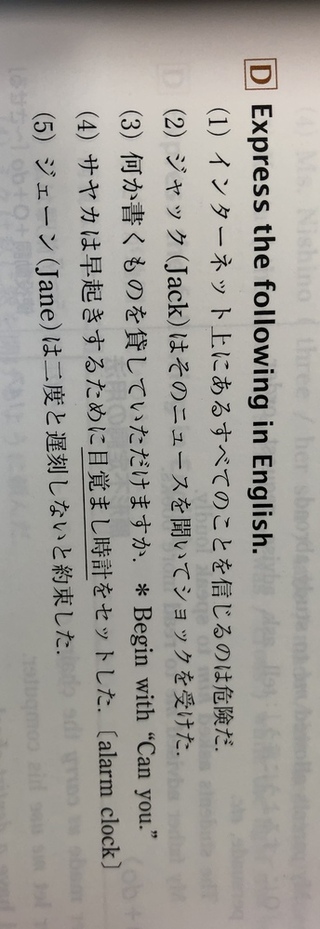 D Express the following in English.
(1) インターネット上にあるすべてのことを信じるのは危険だ.
(2) ジャック(Jack)はそのニュースを聞いてショックを受けた.
(3) 何か書くものを貸していただけますか. * Begin with “Can you.”
(4) サヤカは早起きするために目覚まし時計をセットした.〔alarm clock〕
(5) ジェーン(Jane)は二度と遅刻しないと約束した.